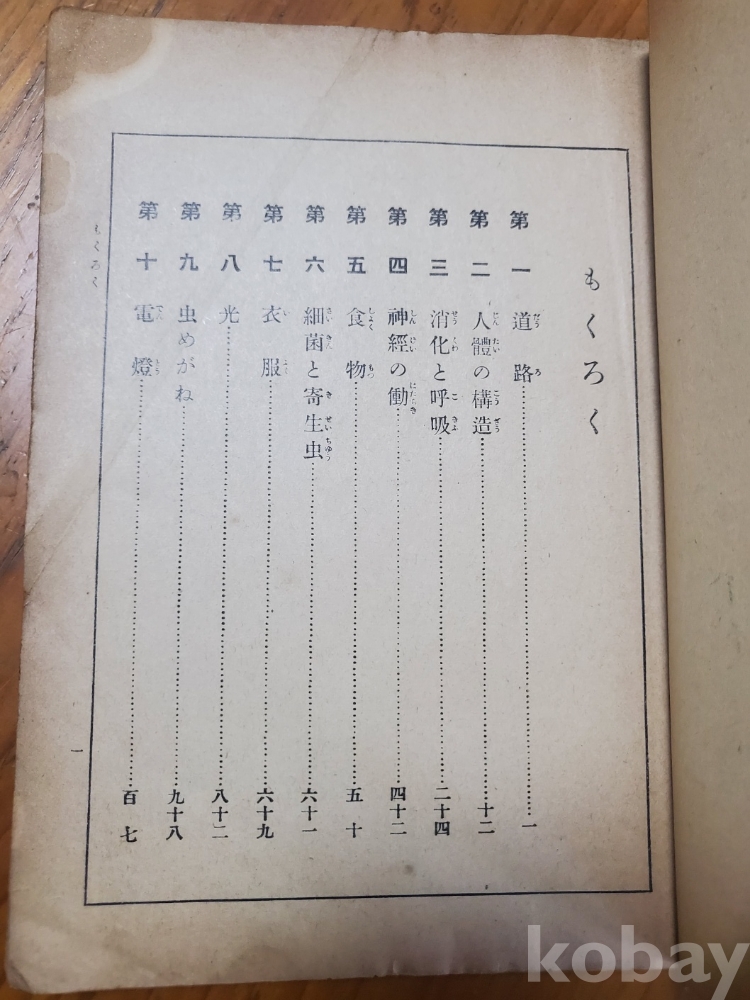 もくろく
第一 道路 一
第二 人體の構造 十二
第三 消化と呼吸 二十四
第四 神經の働 四十二
第五 食物 五十
第六 細菌と寄生虫 六十一
第七 衣服 六十九
第八 光 八十二
第九 虫めがね 九十八
第十 電燈 百七
もくろく
一
kobay